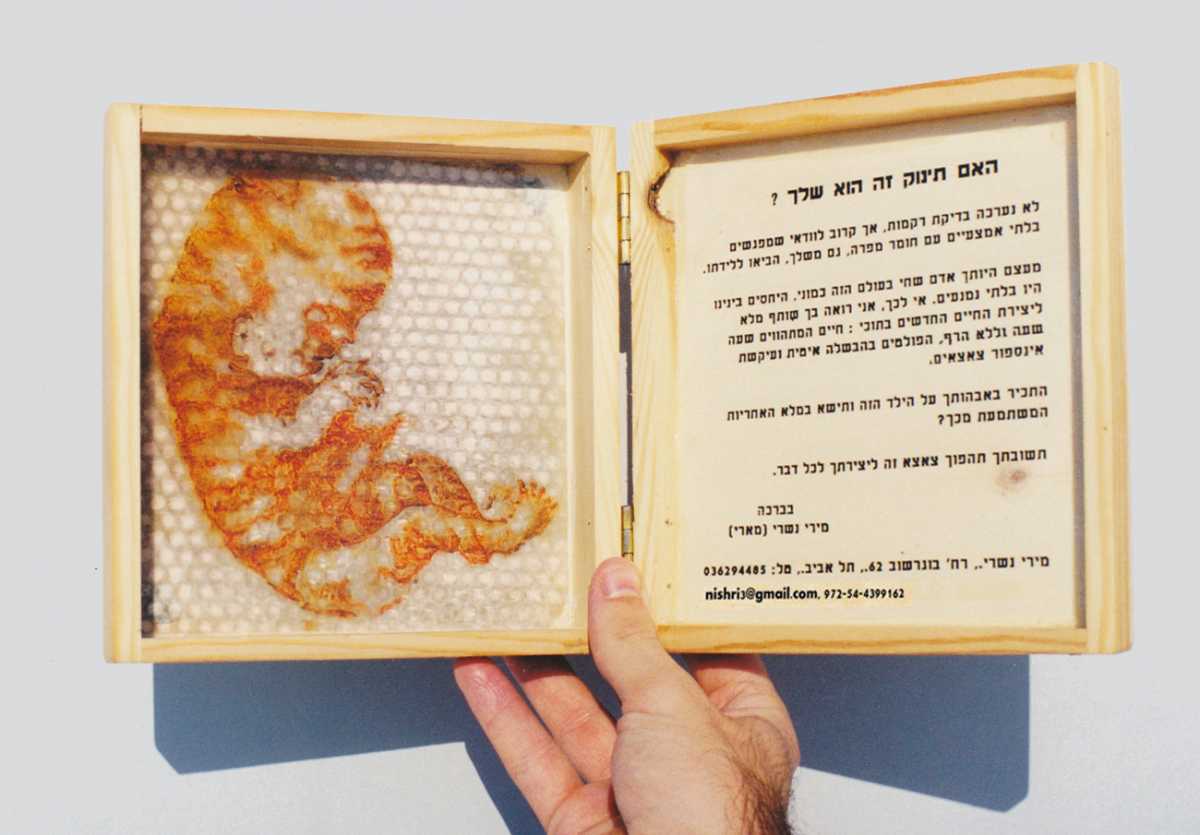 האם תינוק זה הוא שלך ?
לא נערכה בדיקת רקמות, אך קרוב לוודאי שמפגשים
בלתי אמצעיים עם חומר מפרה, גם משלך, הביאו ללידתו.
מעצם היותך אדם שחי בעולם הזה כמוני, היחסים בינינו
היו בלתי נמנעים. אי לכך, אני רואה בך שותף מלא
ליצירת החיים החדשים בתוכי : חיים המתהווים שעה
שעה וללא הרף, הפולטים בהבשלה איטית ועיקשת
אינספור צאצאים.
התכיר באבהותך על הילד הזה ותישא במלא האחריות
המשתמעת מכך?
תשובתך תהפוך צאצא זה ליצירתך לכל דבר.
בברכה
מירי נשרי (מארי)
מירי נשרי., רח' בוגרשוב 62., תל אביב., טל: 036294485
nishri3@gmail.com, 972-54-4399162